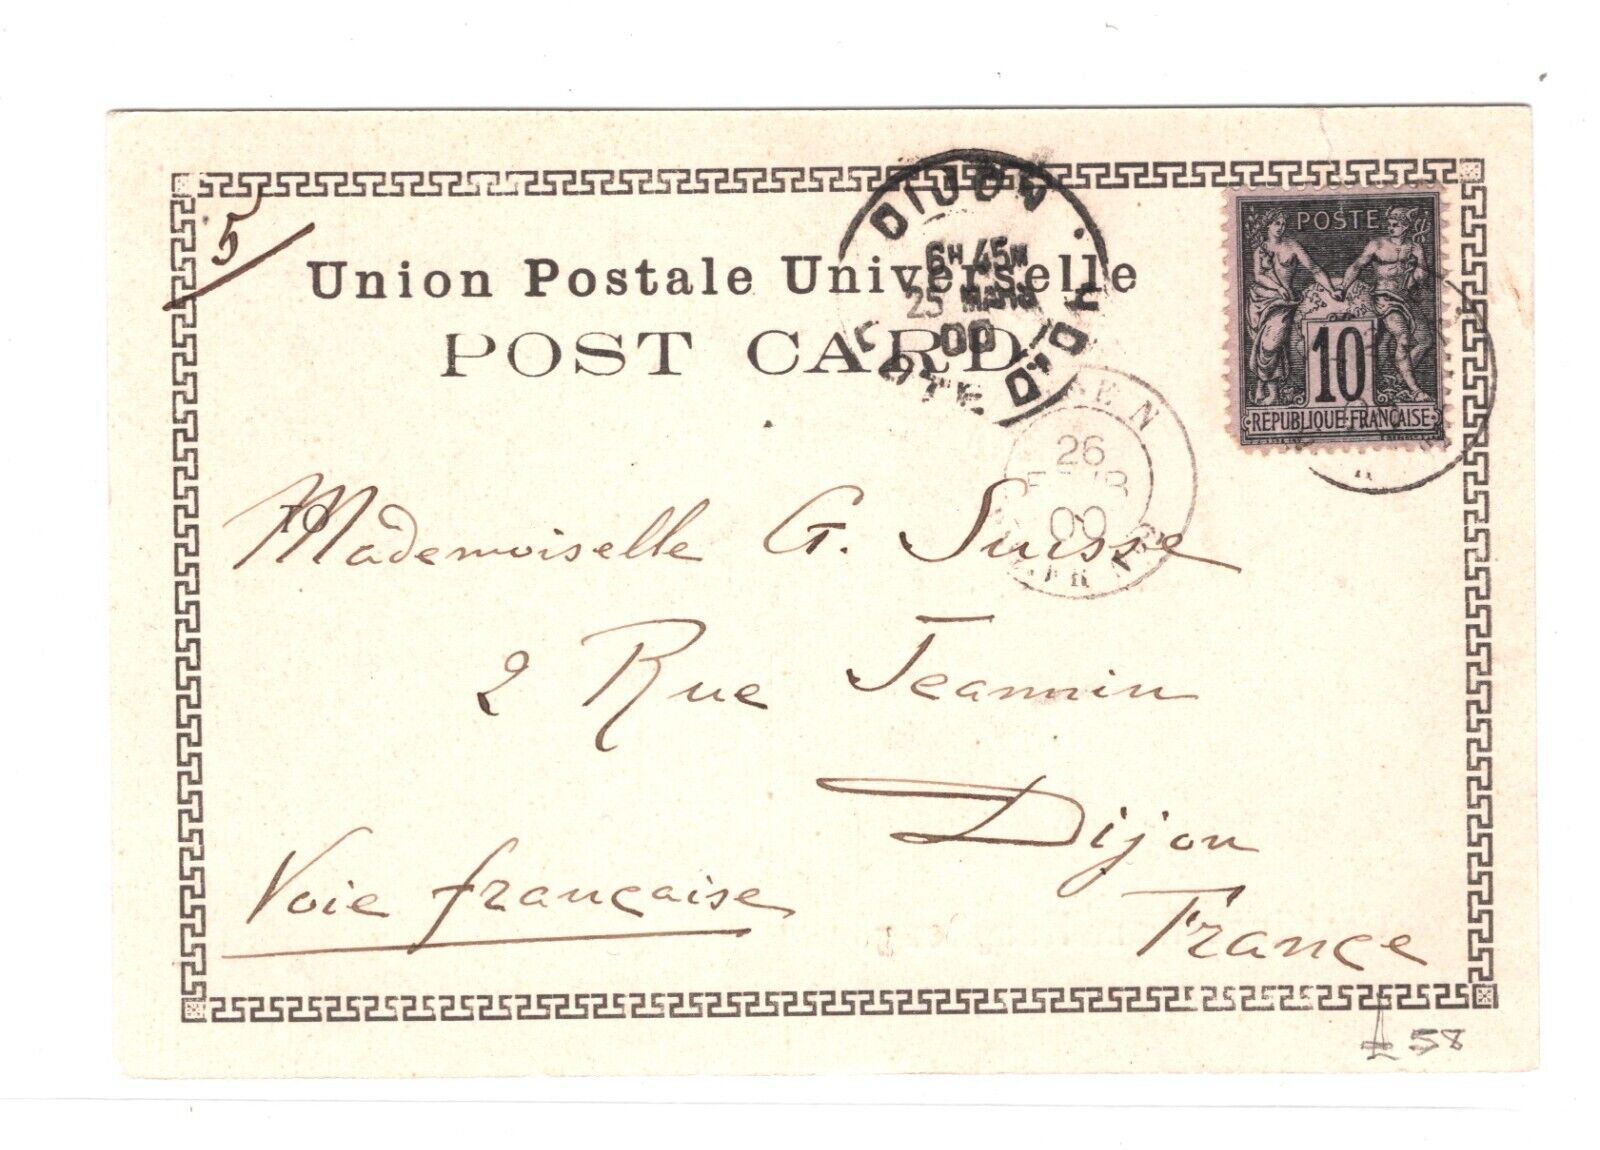 5
Union Postale Universelle
POST CARD
DIJON
6H 45M
25 MARS
00
COTE D'OR
POSTE
10
REPUBLIQUE FRANCAISE
26
00
Mademoiselle G. Suisse
2 Rue Jeannin
Dijon
Voie française
France
58